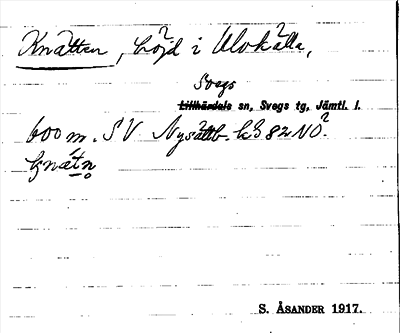 Knätten, höjd i Ulvkälla,
Svegs
Lillhärdals sn, Svegs tg, Jämtl. l.
600 m. SV Nysättb. k 3 82 NO.
knätn
S. ÅSANDER 1917.